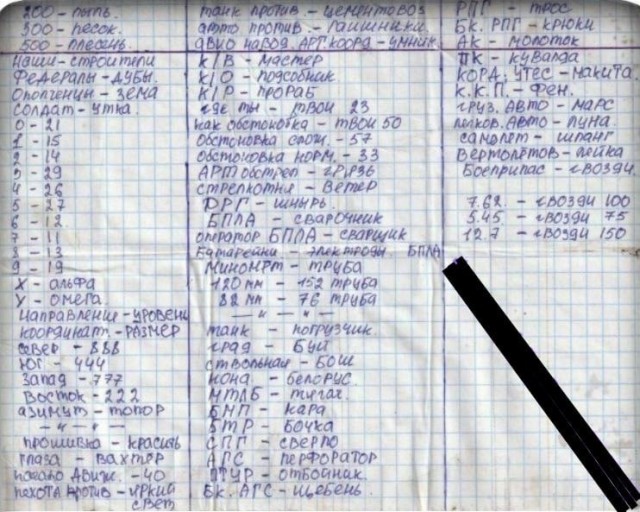 200 - пыль.
300 - песок.
500 - плесень.
наши - строители
Федералы - дубы.
Ополченцы - зема
солдат - утка.
0 - 21
1 - 15
2 - 14
3 - 29
4 - 26
5 - 27
6 - 12
7 - 11
8 - 13
9 - 19
Х - альфа
У - омега.
направление - уровень
координат. - размер
север - 888
Юг - 444
Запад - 777
Восток - 222
азимут - топор
— " — " —
прошивка - красить
глаза - вахтёр
начало движ. - 40
пехота против - яркий
свет
танк против - цементовоз
авто против - гаишники.
авио навод. арт коорд - умник.
К/В - мастер
К/О - подсобник
К/Р - прораб
где ты - твои 23
как обстановка - твои 50
Обстановка слож. - 57
Обстановка норм. - 33
АРТ обстрел - грязь
стрелкотня - ветер
ДРГ - шнырь.
БПЛА - сварочник
оператор БПЛА - сварщик
батарейки - электроды. БПЛА
Миномёт - труба
120 мм - 152 труба
82 мм - 76 труба
— " — " —
танк - погрузчик.
град - Буй
ствольная - Бош
нона - белорус.
МТЛБ - тягач.
БМП - кара
БТР - бочка
СПГ - сверло
АГС - перфоратор
ПТУР - отбойник.
Бк. АГС - щебень.
РПГ - трос
Бк. РПГ - крюки
АК - молоток
ПК - кувалда
КОРД, УТЕС - макита
К.К.П. - фен.
груз. Авто - марс
легков. Авто - луна.
самолёт - шланг
Вертолётов - лейка
Боеприпас - гвозди.
7.62. - гвозди 100
5.45 - гвозди 75
12.7 - гвозди 150